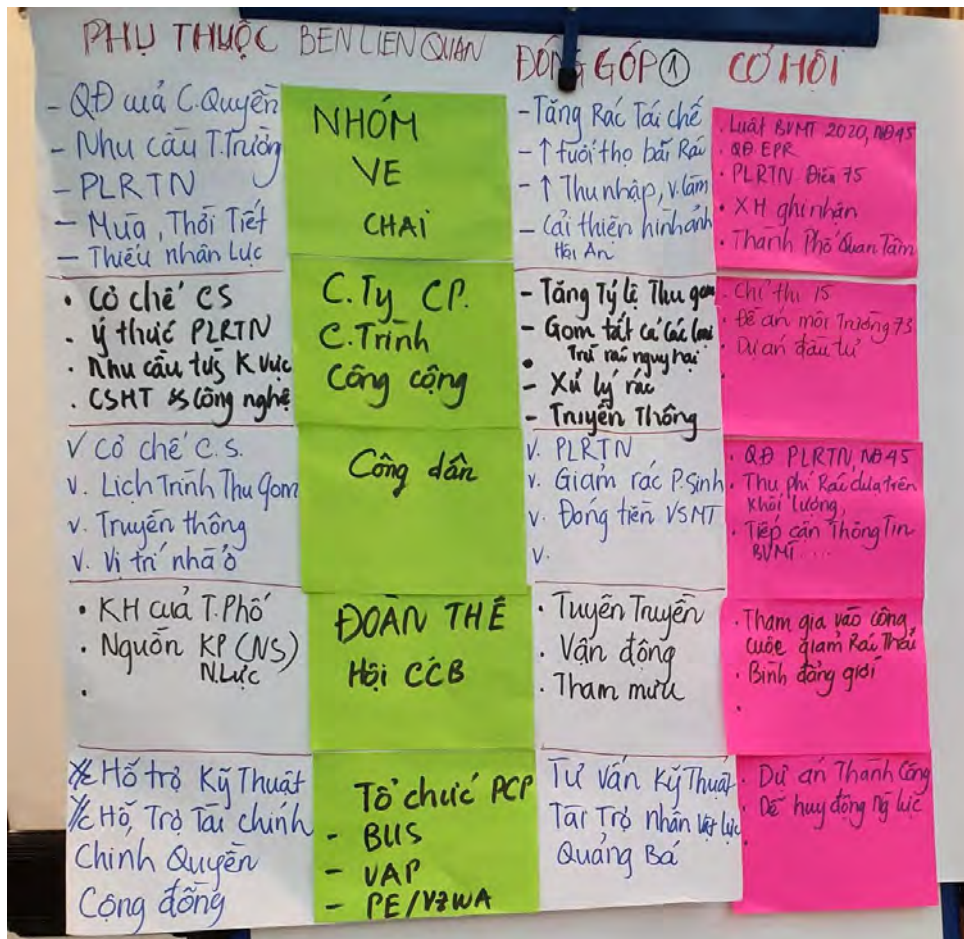 PHỤ THUỘC
BEN LIEN QUAN
ĐÓNG GÓP ①
CƠ HỘI
- QĐ cuả C.Quyền
- Nhu cầu T.Trường
- PLRTN
- Mưa, Thời Tiết
- Thiếu nhân Lực
NHÓM
VE
CHAI
- Tăng Rác Tái chế
- ↑ tuổi thọ bãi Rác
- ↑ Thu nhập, v.làm
- Cải thiện hình ảnh
Hội An
. Luật BVMT 2020, NĐ45
. QĐ EPR
. PLRTN Điều 75
. XH ghi nhận
. Thành Phố Quan Tâm
. Cơ chế CS
. Ý thức PLRTN
. Nhu cầu từg K.vực
. CSHT & Công nghệ
C.Ty CP.
C.Trình
Công cộng
- Tăng Tỷ lệ Thu gom
- Gom tất cả các loại
. Trừ rác nguy hại
- Xử lý rác
- Truyền Thông
. Chỉ thị 15
. Đề án môi Trường 73
. Dự án đầu tư
.
v Cơ chế C.S.
v. Lịch Trình Thu Gom
v. Truyền thông
v. Vị trí nhà ở
Công dân
v. PLRTN
v. Giảm rác P.Sinh
v. Đóng tiền VSMT
v.
. QĐ PLRTN, NĐ45
. Thu phí Rác dựa trên
khối lượng,
. Tiếp cận Thông Tin
BVMT....
. KH cuả T.Phố
. Nguồn KP (NS)
N.Lực
.
ĐOÀN THỂ
Hội CCB
. Tuyên Truyền
. Vận động
. Tham mưu
. Tham gia vào công
cuộc giảm Rác Thải
. Bình đẳng giới
.
Hỗ trợ Kỹ Thuật
Hỗ Trợ Tài chính
Chính Quyền
Cộng đồng
Tổ chức PCP
- BUS
- VAP
- PE/VZWA
Tư vấn Kỹ Thuật
Tài Trợ nhân vật lực
Quảng Bá
. Dự án Thành Công
. Dễ huy động ng lực
.